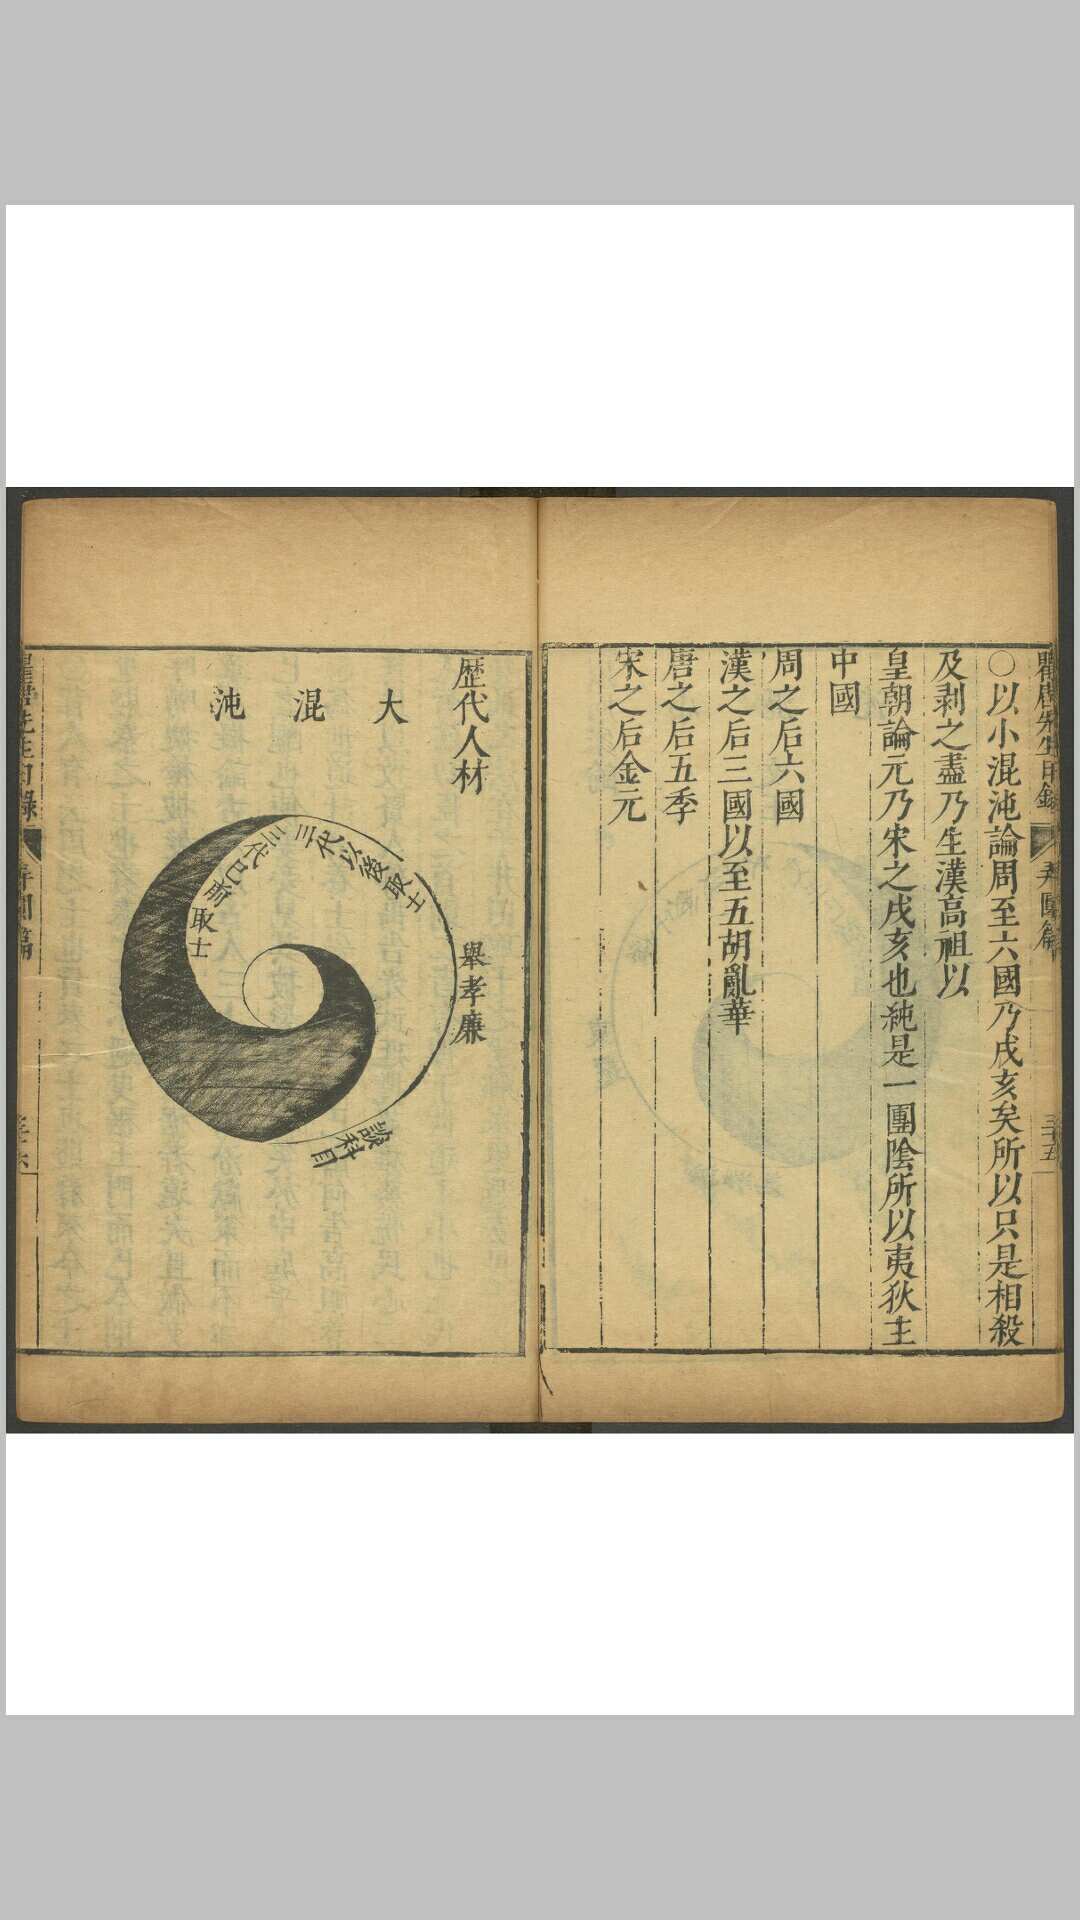 瞿唐先生日錄
弄圓篇
三十五
○以小混沌論周至六國乃戌亥矣所以只是相殺
及剥之盡乃生漢高祖以
皇朝論元乃宋之戌亥也純是一團陰所以夷狄主
中國
周之后六國
漢之后三國以至五胡亂華
唐之后五季
宋之后金元
歷代人材
大
混
沌
三代以後取士
三代已前取士
舉孝廉
設科目
瞿唐先生日錄
弄圓篇